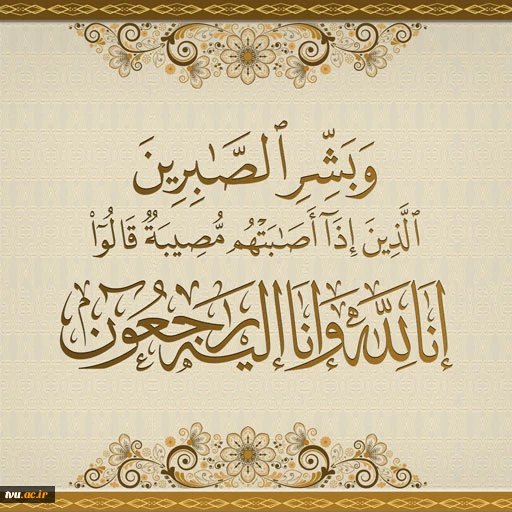 وَبَشِّرِ ٱلصَّٰبِرِينَ
ٱلَّذِينَ إِذَآ أَصَٰبَتْهُم مُّصِيبَةٌۭ قَالُوٓا۟
إنا لله وإنا إليه راجعون
tvu.ac.ir